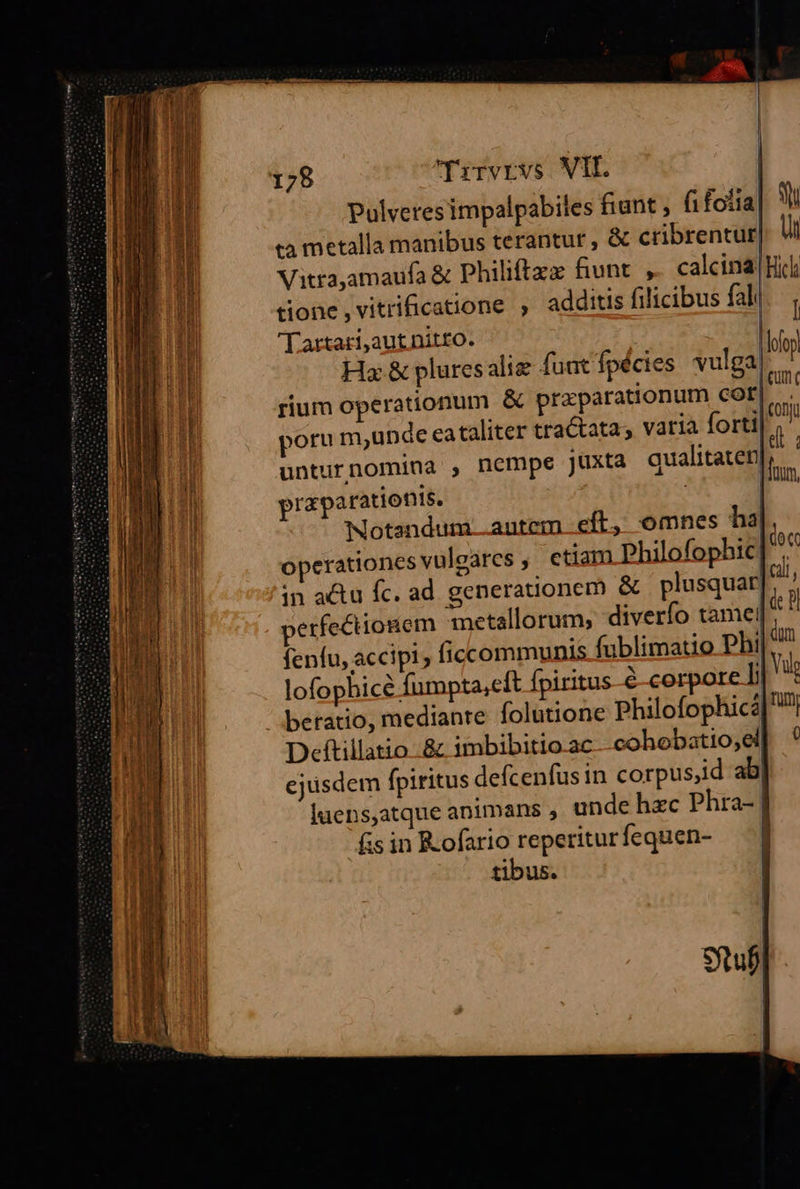 178 TITVLVS VII.
Pulveres impalpabiles fiunt, si folia
ta metalla manibus terantur, & cribrentur
Vitra, amausa & Philistææ fiunt, calcina
tione, vitrificatione, additis silicibus sal
Tartari, aut nitro.
Hæ & plures aliæ sunt species vulga
rium operationum & præparationum cor
porum, unde ea taliter tractata, varia sorti
untur nomina, nempe juxta qualitatem
præparationis.
Notandum autem est, omnes ha
operationes vulgares, etiam Philosophic
in actu sc. ad generationem & plusquam
perfectionem metallorum, diverso tamen
sensu, accipi, sic communis sublimatio Phi
losophicè sumpta, est spiritus è corpore li
beratio, mediante solutione Philosophicâ
Destillatio & imbibitio ac cohobatio, est
ejusdem spiritus descensus in corpus, id ab
luens, atque animans, unde hæc Phra-
sis in Rosario reperitur sequen-
tibus.
Nuß